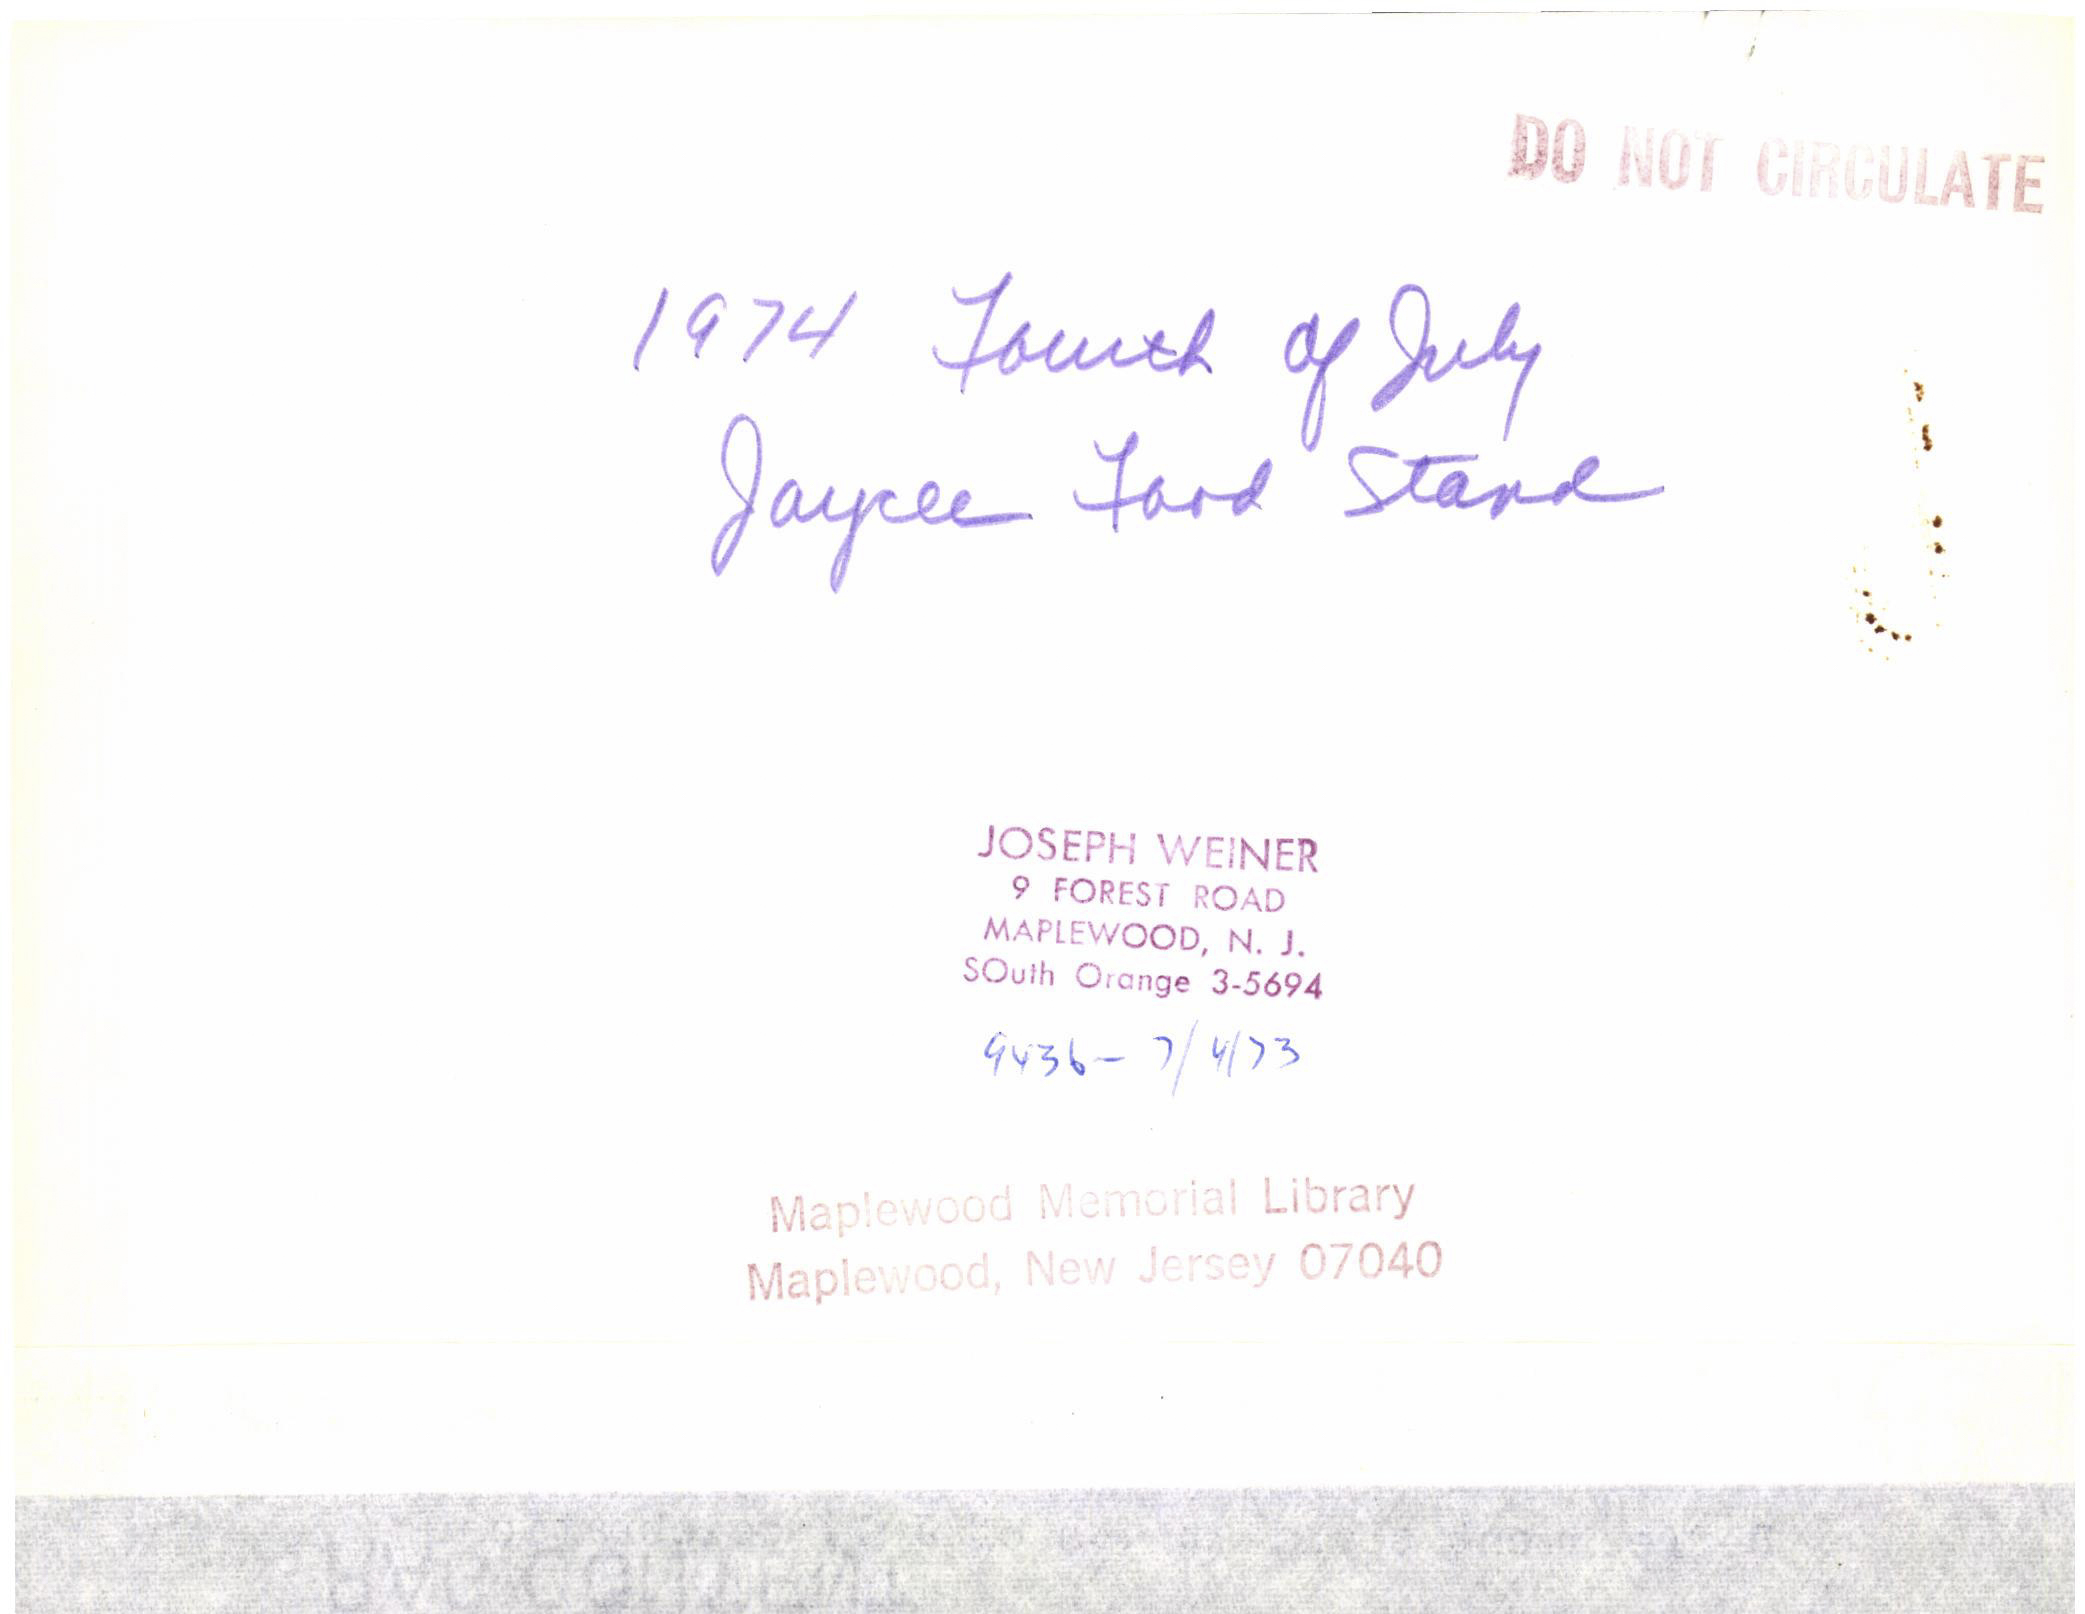 DO NOT CIRCULATE
1974 Fourth of July
Jaycee Food Stand
JOSEPH WEINER
9 FOREST ROAD
MAPLEWOOD, N. J.
SOuth Orange 3-5694
9436- 7/4/73
Maplewood Memorial Library
Maplewood, New Jersey 07040